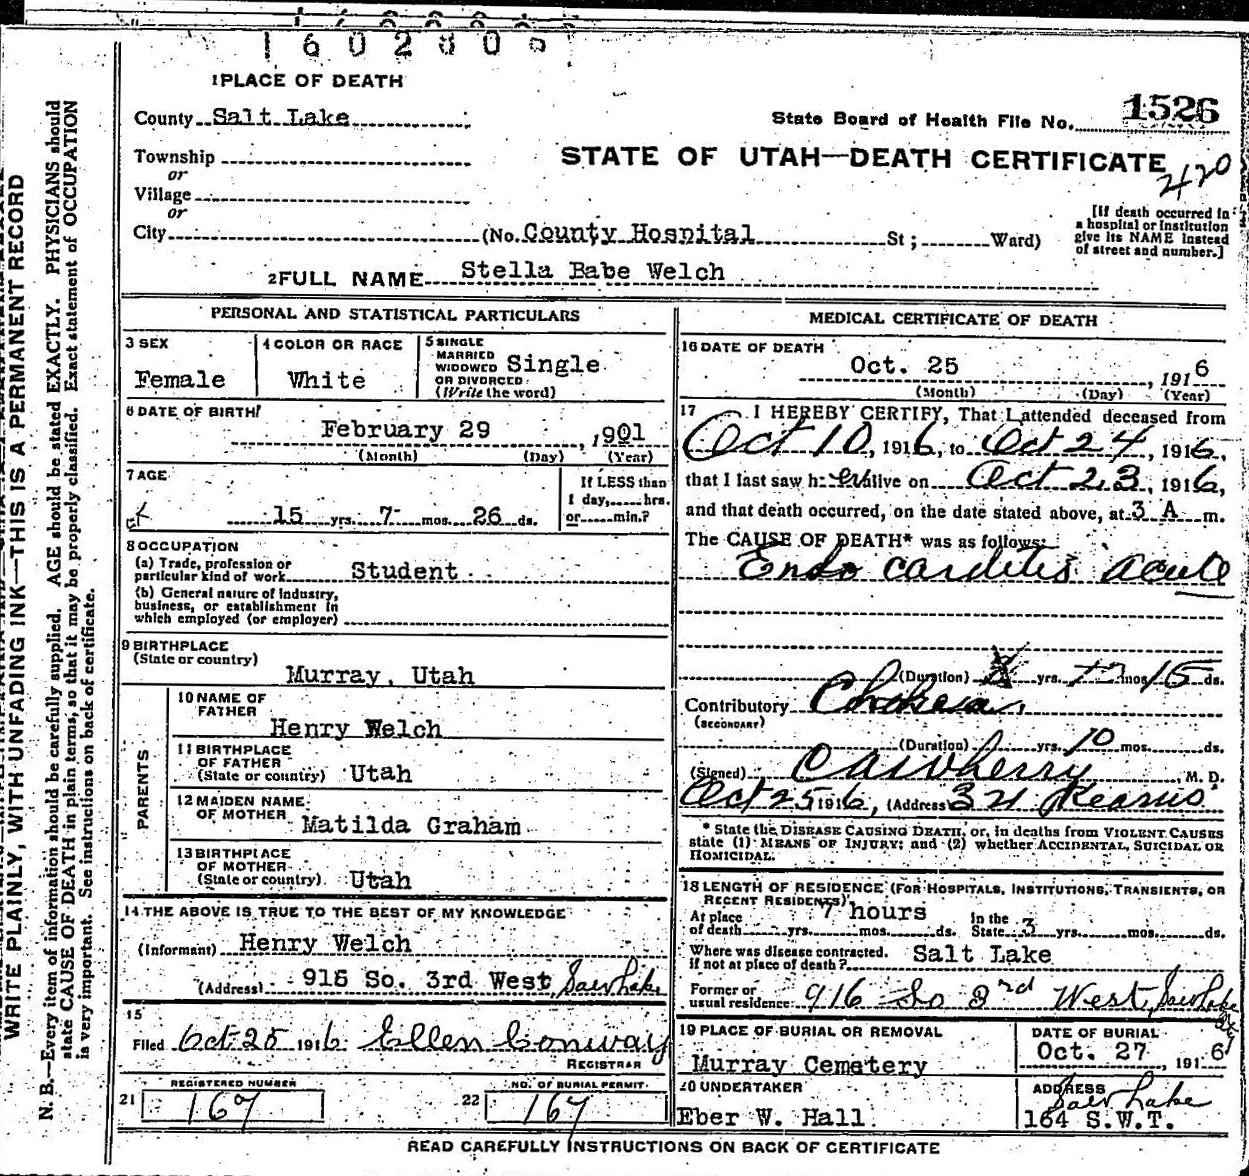 1602800
1 PLACE OF DEATH
County Salt Lake
State Board of Health File No. 1526
Township
or
Village
or
City
STATE OF UTAH—DEATH CERTIFICATE
420
(No. County Hospital St; Ward)
[If death occurred in
a hospital or institution
give its NAME instead
of street and number.]
2 FULL NAME Stella Babe Welch
PERSONAL AND STATISTICAL PARTICULARS
3 SEX
Female
4 COLOR OR RACE
White
5 SINGLE
MARRIED
WIDOWED
OR DIVORCED
(Write the word)
Single
6 DATE OF BIRTH
February 29, 1901
(Month) (Day) (Year)
7 AGE
15 yrs. 7 mos. 26 ds.
If LESS than
1 day, hrs.
or min.?
8 OCCUPATION
(a) Trade, profession or
particular kind of work Student
(b) General nature of industry,
business, or establishment in
which employed (or employer)
9 BIRTHPLACE
(State or country)
Murray, Utah
PARENTS
10 NAME OF
FATHER
Henry Welch
11 BIRTHPLACE
OF FATHER
(State or country) Utah
12 MAIDEN NAME
OF MOTHER Matilda Graham
13 BIRTHPLACE
OF MOTHER
(State or country) Utah
14 THE ABOVE IS TRUE TO THE BEST OF MY KNOWLEDGE
(Informant) Henry Welch
(Address) 916 So. 3rd West, Salt Lake
15
Filed Oct 25 1916 Ellen Conway
REGISTRAR
REGISTERED NUMBER
21 167
NO. OF BURIAL PERMIT
22 167
MEDICAL CERTIFICATE OF DEATH
16 DATE OF DEATH
Oct. 25, 1916
(Month) (Day) (Year)
17 I HEREBY CERTIFY, That I attended deceased from
Oct 10, 1916, to Oct 24, 1916,
that I last saw her alive on Oct 23, 1916,
and that death occurred, on the date stated above, at 3 A m.
The CAUSE OF DEATH* was as follows:
Endo carditis acute
(Duration) yrs. mos 15 ds.
Contributory Chorea
(SECONDARY)
(Duration) yrs. 10 mos. ds.
(Signed), M. D.
Oct 25 1916, (Address) Kearns
* State the DISEASE CAUSING DEATH, or, in deaths from VIOLENT CAUSES
state (1) MEANS OF INJURY; and (2) whether ACCIDENTAL, SUICIDAL OR
HOMICIDAL.
18 LENGTH OF RESIDENCE (FOR HOSPITALS, INSTITUTIONS, TRANSIENTS, OR
RECENT RESIDENTS)
At place
of death yrs. mos. ds. 7 hours
In the
State 3 yrs. mos. ds.
Where was disease contracted,
if not at place of death? Salt Lake
Former or
usual residence 916 So 3rd West, Salt Lake City
19 PLACE OF BURIAL OR REMOVAL
Murray Cemetery
DATE OF BURIAL
Oct. 27, 1916
20 UNDERTAKER
Eber W. Hall
ADDRESS
Salt Lake
164 S.W.T.
READ CAREFULLY INSTRUCTIONS ON BACK OF CERTIFICATE
WRITE PLAINLY, WITH UNFADING INK—THIS IS A PERMANENT RECORD
N. B.—Every item of information should be carefully supplied. AGE should be stated EXACTLY. PHYSICIANS should
state CAUSE OF DEATH in plain terms, so that it may be properly classified. Exact statement of OCCUPATION
is very important. See instructions on back of certificate.